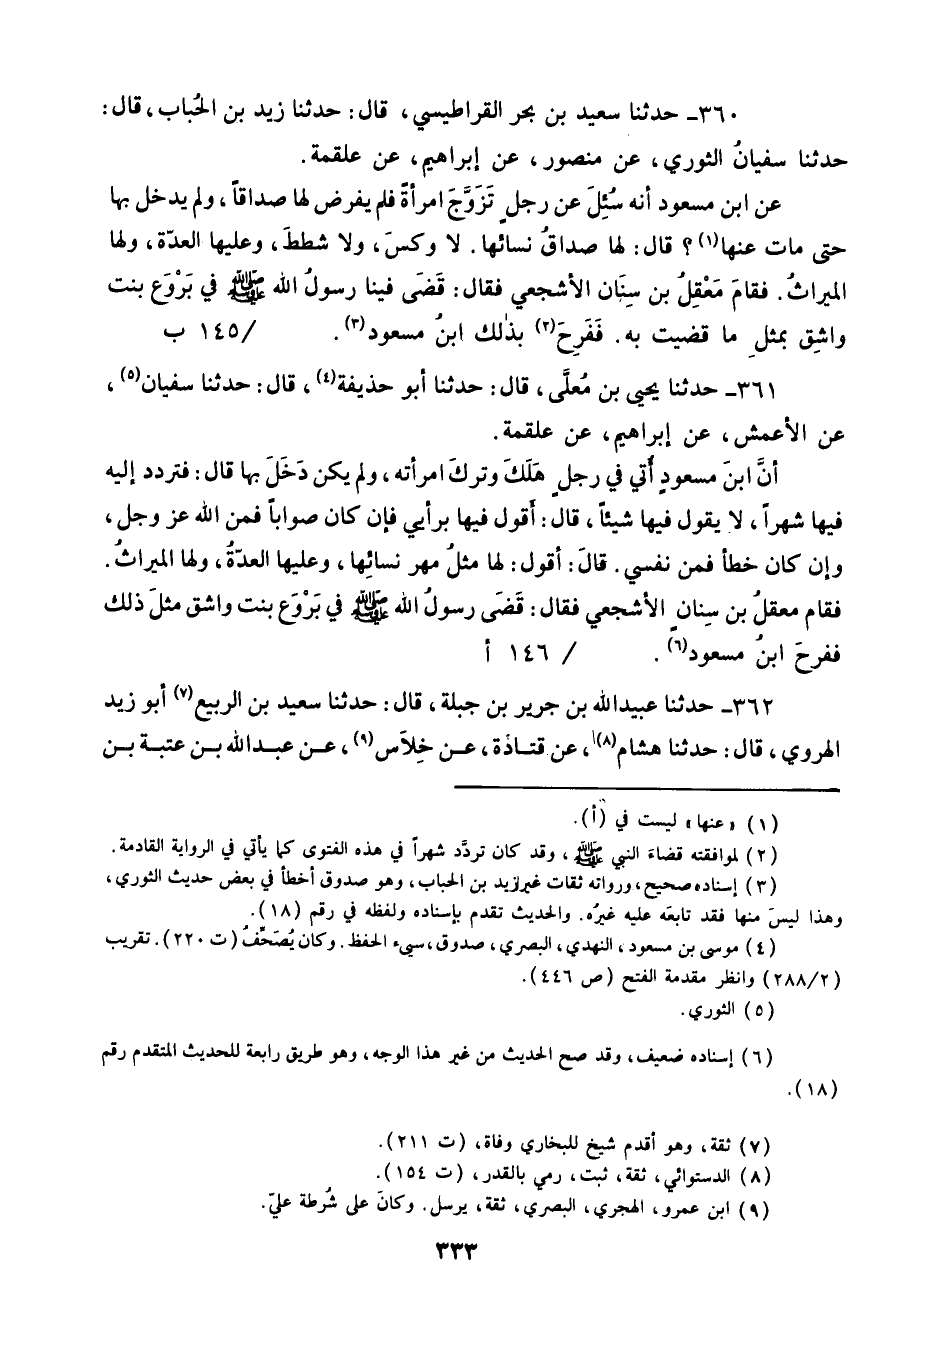 ٣٦٠ـ حدثنا سعيد بن بحر القراطيسي، قال: حدثنا زيد بن الحُباب، قال:
حدثنا سفيانُ الثوري، عن منصور، عن إبراهيم، عن علقمة.
عن ابن مسعود أنه سُئِلَ عن رجلٍ تَزَوَّجَ امرأةً فلم يفرض لها صداقاً، ولم يدخل بها
حتى مات عنها(١)؟ قال: لها صداقُ نسائها. لا وكسَ، ولا شططَ، وعليها العدّة، ولها
الميراثُ. فقامَ مَعْقِلُ بن سِنَان الأشجعي فقال: قَضَى فينا رسولُ الله ﷺ في بَرْوَع بنت
واشِق بمثلِ ما قضيت به. فَفَرِحَ(٢) بذٰلك ابنُ مسعود(٣). /١٤٥ ب
٣٦١ـ حدثنا يحيى بن مُعلَّى، قال: حدثنا أبو حذيفة(٤)، قال: حدثنا سفيان(٥)،
عن الأعمش، عن إبراهيم، عن علقمة.
أنَّ ابنَ مسعودٍ أُتي في رجلٍ هَلَكَ وتركَ امرأته، ولم يكن دَخَلَ بها قال: فتردد إليه
فيها شهراً، لا يقول فيها شيئاً، قال: أقول فيها برأيي فإن كان صواباً فمن الله عز وجل،
وإن كان خطأ فمن نفسي. قالَ: أقول: لها مثلُ مهر نسائِها، وعليها العدّةُ، ولها الميراثُ.
فقام معقلُ بن سِنانٍ الأشجعي فقال: قَضَى رسولُ الله ﷺ في بَرْوَع بنت واشق مثلَ ذلك
ففرحَ ابنُ مسعود(٦). / ١٤٦ أ
٣٦٢ـ حدثنا عبيدالله بن جرير بن جبلة، قال: حدثنا سعيد بن الربيع(٧) أبو زيد
الهروي، قال: حدثنا هشام(٨)، عن قتادة، عن خِلاَس(٩)، عن عبدالله بن عتبة بن
(١) «عنها» ليست في (أ).
(٢) لموافقته قضاءَ النبي ﷺ، وقد كان تردَّد شهراً في هذه الفتوى كما يأتي في الرواية القادمة.
(٣) إسناده صحيح، ورواته ثقات غير زيد بن الحباب، وهو صدوق أخطأ في بعض حديث الثوري،
وهذا ليسَ منها فقد تابعَه عليه غيرُه. والحديث تقدم بإسناده ولفظه في رقم (١٨).
(٤) موسى بن مسعود، النهدي، البصري، صدوق، سيء الحفظ. وكان يُصَحِّفُ (ت ٢٢٠). تقريب
(٢/٢٨٨) وانظر مقدمة الفتح (ص ٤٤٦).
(٥) الثوري.
(٦) إسناده ضعيف، وقد صح الحديث من غير هذا الوجه، وهو طريق رابعة للحديث المتقدم رقم
(١٨).
(٧) ثقة، وهو أقدم شيخ للبخاري وفاة، (ت ٢١١).
(٨) الدستوائي، ثقة، ثبت، رمي بالقدر، (ت ١٥٤).
(٩) ابن عمرو، الهجري، البصري، ثقة، يرسل. وكانَ على شُرطة عليّ.
٣٣٣